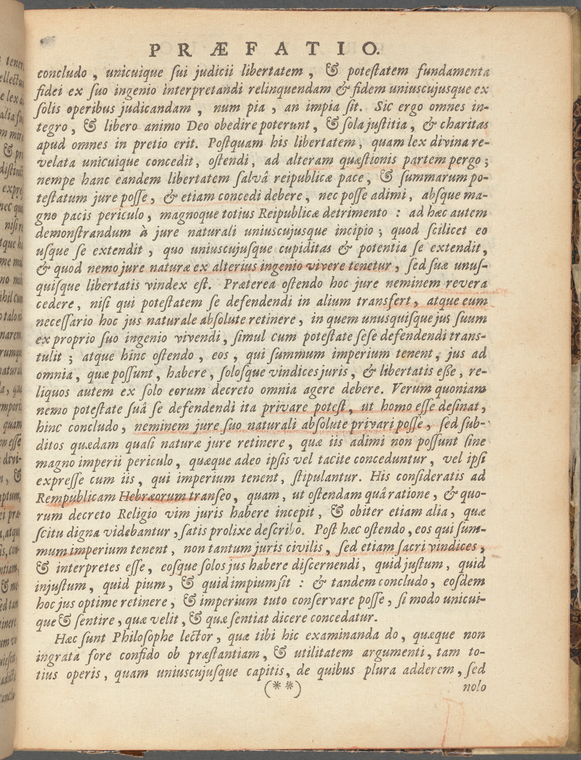 PRÆFATIO.
concludo, unicuique sui judicii libertatem, & potestatem fundamenta
fidei ex suo ingenio interpretandi relinquendam & fidem uniuscujusque ex
solis operibus judicandam, num pia, an impia sit. Sic ergo omnes in-
tegro, & libero animo Deo obedire poterunt, & sola justitia, & charitas
apud omnes in pretio erit. Postquam his libertatem, quam lex divina re-
velata unicuique concedit, ostendi, ad alteram quæstionis partem pergo;
nempe hanc eandem libertatem salvâ reipublicæ pace, & summarum po-
testatum jure posse, & etiam concedi debere, nec posse adimi, absque ma-
gno pacis periculo, magnoque totius Reipublicæ detrimento: ad hæc autem
demonstrandum à jure naturali uniuscujusque incipio; quod scilicet eo
usque se extendit, quo uniuscujusque cupiditas & potentia se extendit,
& quod nemo jure naturæ ex alterius ingenio vivere tenetur, sed suæ unus-
quisque libertatis vindex est. Præterea ostendo hoc jure neminem revera
cedere, nisi qui potestatem se defendendi in alium transfert, atque eum
necessario hoc jus naturale absolute retinere, in quem unusquisque jus suum
ex proprio suo ingenio vivendi, simul cum potestate sese defendendi trans-
tulit; atque hinc ostendo, eos, qui summum imperium tenent, jus ad
omnia, quæ possunt, habere, solosque vindices juris, & libertatis esse, re-
liquos autem ex solo eorum decreto omnia agere debere. Verum quoniam
nemo potestate suâ se defendendi ita privare potest, ut homo esse desinat,
hinc concludo, neminem jure suo naturali absolute privari posse, sed sub-
ditos quædam quasi naturæ jure retinere, quæ iis adimi non possunt sine
magno imperii periculo, quæque adeo ipsis vel tacite conceduntur, vel ipsi
expresse cum iis, qui imperium tenent, stipulantur. His consideratis ad
Rempublicam Hebræorum transeo, quam, ut ostendam quâ ratione, & quo-
rum decreto Religio vim juris habere incepit, & obiter etiam alia, quæ
scitu digna videbantur, satis prolixe describo. Post hæc ostendo, eos qui sum-
mum imperium tenent, non tantum juris civilis, sed etiam sacri vindices,
& interpretes esse, eosque solos jus habere discernendi, quid justum, quid
injustum, quid pium, & quid impium sit: & tandem concludo, eosdem
hoc jus optime retinere, & imperium tuto conservare posse, si modo unicui-
que & sentire, quæ velit, & quæ sentiat dicere concedatur.
Hæc sunt Philosophe lector, quæ tibi hic examinanda do, quæque non
ingrata fore confido ob præstantiam, & utilitatem argumenti, tam to-
tius operis, quam uniuscujusque capitis, de quibus plura adderem, sed
(**) nolo